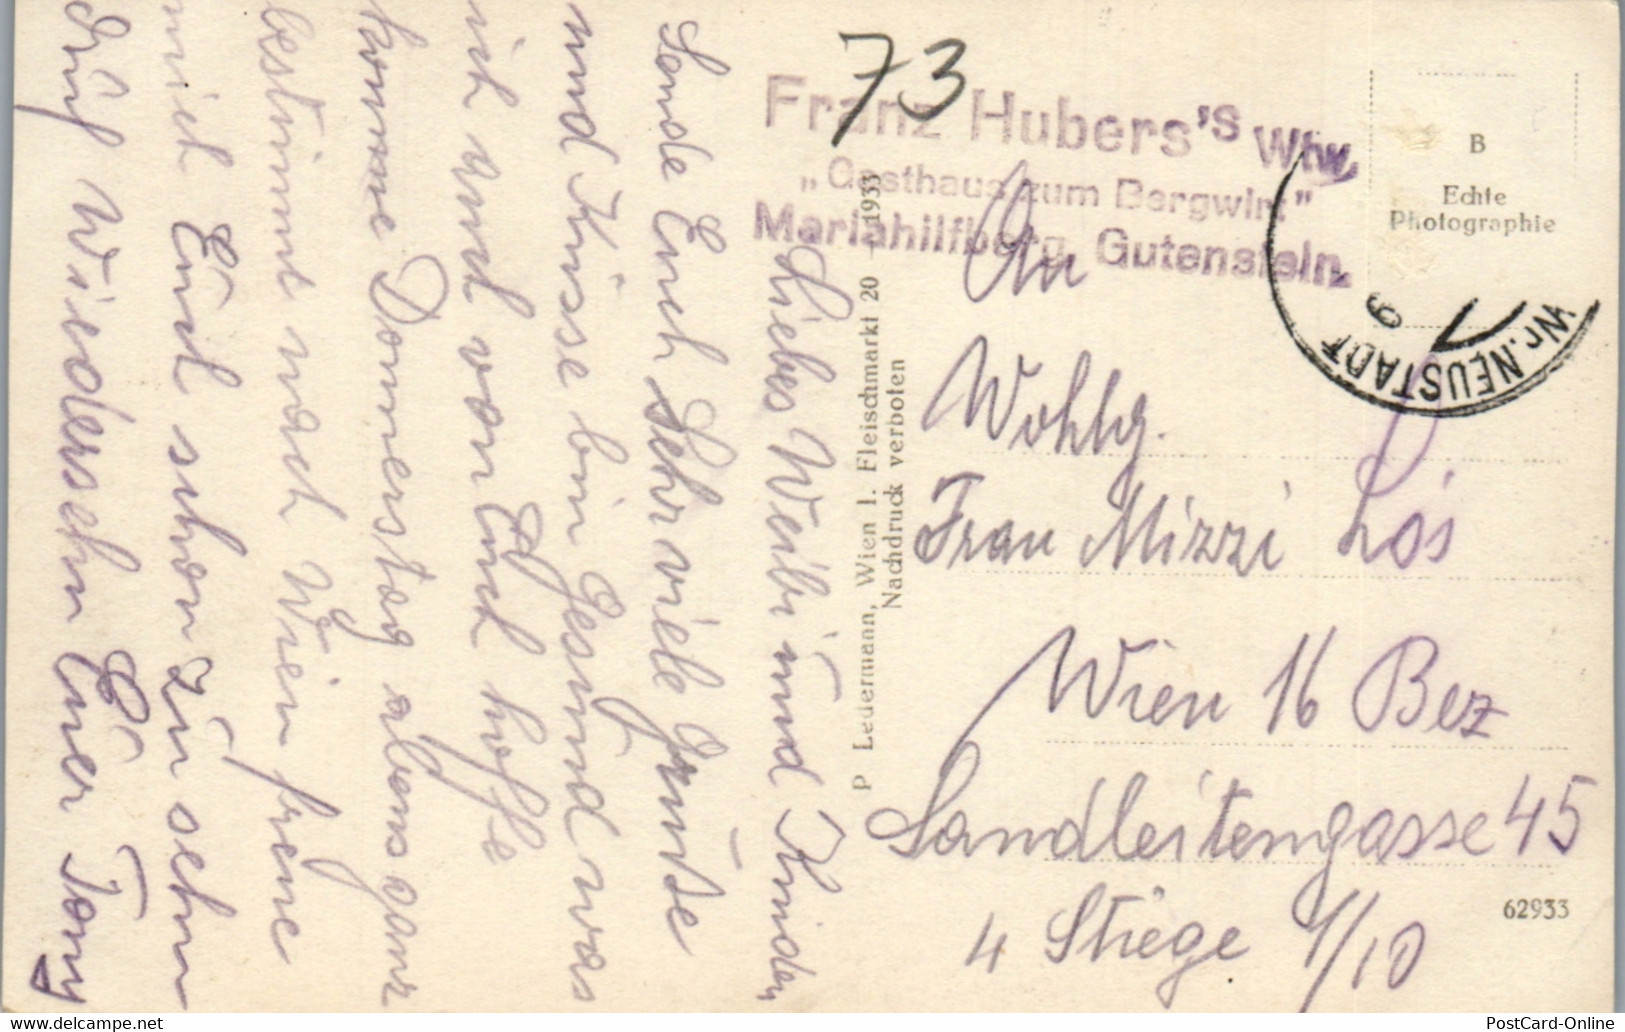 73
Franz Hubers's Wtw.
„Gasthaus zum Bergwirt"
Mariahilfberg, Gutenstein.
B
Echte
Photographie
Wr. NEUSTADT
9
An
Wohlg.
Frau Mizzi Lós
Wien 16 Bez
Sandleitengasse 45
4 Stiege 1/10
62933
P Ledermann, Wien I. Fleischmarkt 20 — 1933
Nachdruck verboten
Liebes Weibi und Kinder
Sende Euch sehr viele Grüße
und Küsse bin Gesund was
ich auch von Euch hoffe
komme Donnerstag abens ganz
bestimmt nach Wien freue
mich Euch schon zu sehn
Auf Wiedersehn Euer Tony